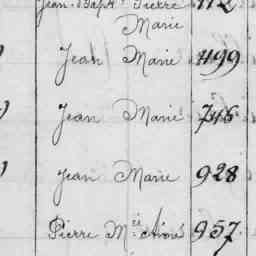 Jean Bapt. Pierre 112
Marie
Jean Marie 499
Jean Marie 745
Jean Marie 928
Pierre M.ie Aimé 957